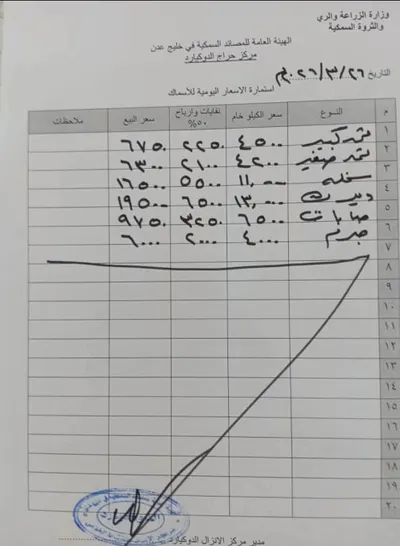 وزارة الزراعة والري
والثروة السمكية
الهيئة العامة للمصائد السمكية في خليج عدن
مركز حراج الدوكيارد
التاريخ ٢٠٢٦/٣/٢٦م
استمارة الاسعار اليومية للأسماك
م النوع سعر الكيلو خام نفايات وارباح ٥٠% سعر البيع ملاحظات
١ ثمد كبير ٤٥٠٠ ٢٢٥٠ ٦٧٥٠
٢ ثمد صغير ٤٢٠٠ ٢١٠٠ ٦٣٠٠
٣ سخله ١١,٠٠٠ ٥٥٠٠ ١٦٥٠٠
٤ ديرك ١٣,٠٠٠ ٦٥٠٠ ١٩٥٠٠
٥ ٦٥٠٠ ٣٢٥٠ ٩٧٥٠
٦ ٤٠٠٠ ٢٠٠٠ ٦٠٠٠
٧
٨
٩
١٠
١١
١٢
١٣
١٤
١٥
١٦
١٧
١٨
١٩
٢٠
مدير مركز الانزال الدوكيارد